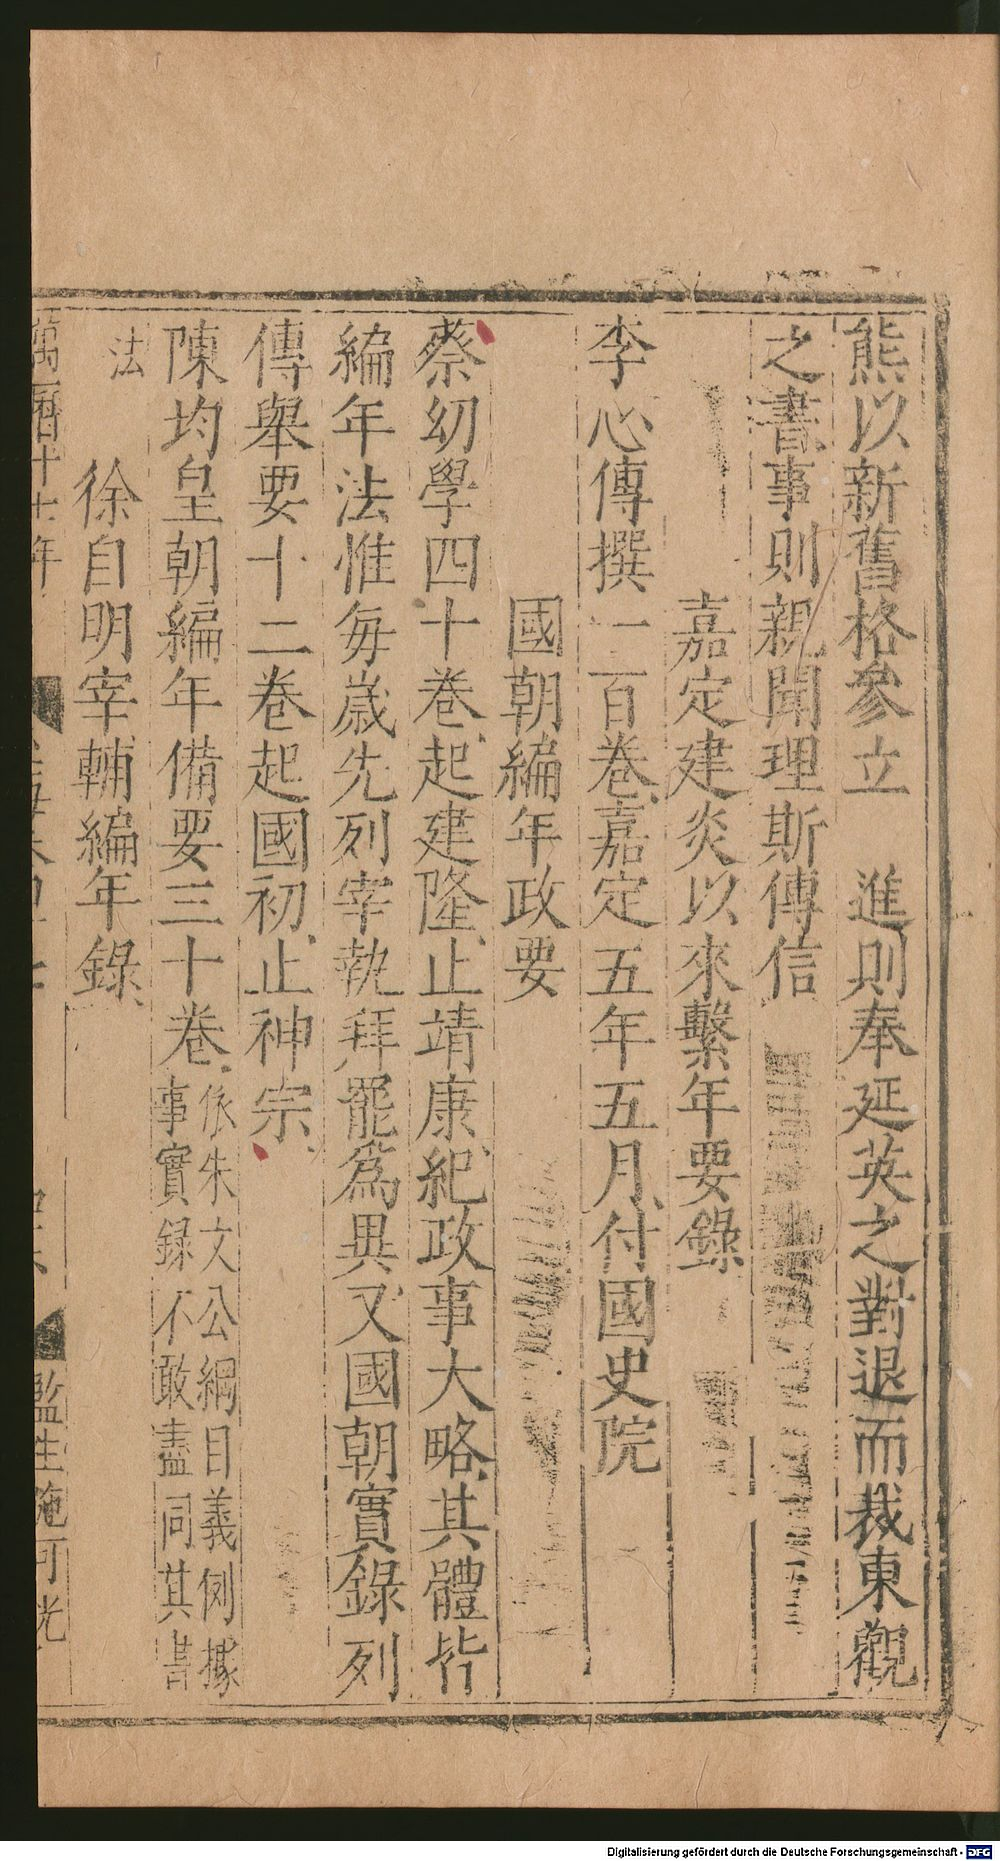 熊以新舊格參立　進則奉延英之對退而裁東觀
之書事則親聞理斯傳信
嘉定建炎以來繫年要錄
李心傳撰一百卷嘉定五年五月付國史院
國朝編年政要
蔡幼學四十卷起建隆止靖康紀政事大略其體皆
編年法惟每歲先列宰執拜罷爲異又國朝實錄列
傳舉要十二卷起國初止神宗
陳均皇朝編年備要三十卷
依朱文公綱目義例據
事實録不敢盡同其書
法
徐自明宰輔編年錄
萬曆十七年
監生施可光
Digitalisierung gefördert durch die Deutsche Forschungsgemeinschaft - DFG